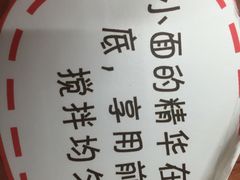 小面的精华在
底，享用前
搅拌均匀